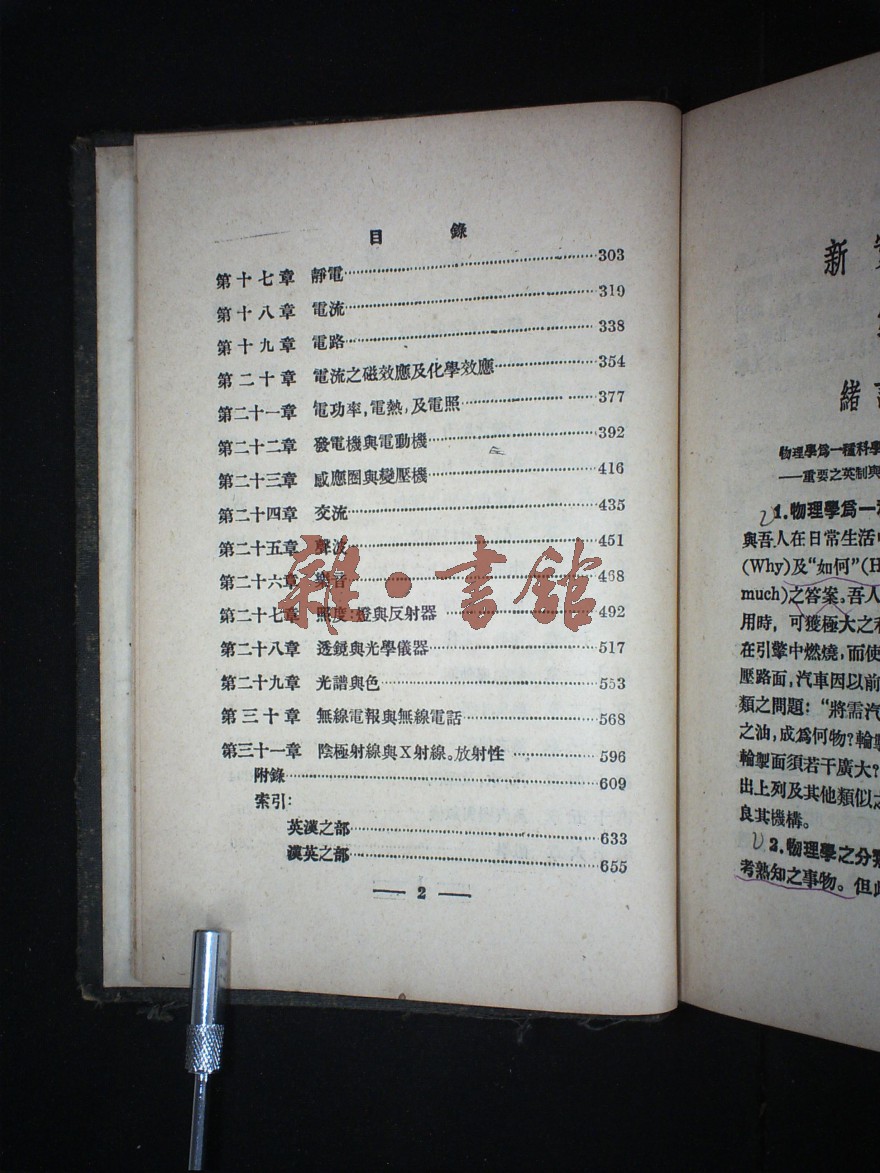 目錄
第十七章 靜電……303
第十八章 電流……319
第十九章 電路……338
第二十章 電流之磁效應及化學效應……354
第二十一章 電功率,電熱,及電照……377
第二十二章 發電機與電動機……392
第二十三章 感應圈與變壓機……416
第二十四章 交流……435
第二十五章 聲波……451
第二十六章 樂音……468
第二十七章 照度:燈與反射器……492
第二十八章 透鏡與光學儀器……517
第二十九章 光譜與色……553
第三十章 無線電報與無線電話……568
第三十一章 陰極射線與X射線。放射性……596
附錄……609
索引:
英漢之部……633
漢英之部……655
— 2 —
雜·書館
新
緒
物理學爲一種科學
——重要之英制與
1.物理學爲一
與吾人在日常生活
(Why)及“如何”(H
much)之答案。吾人
用時,可獲極大之
在引擎中燃燒,而使
壓路面,汽車因以前
類之問題:“將需汽
之油,成爲何物?輪
輪掣面須若干廣大?
出上列及其他類似之
良其機構。
2.物理學之分類
考熟知之事物。但此